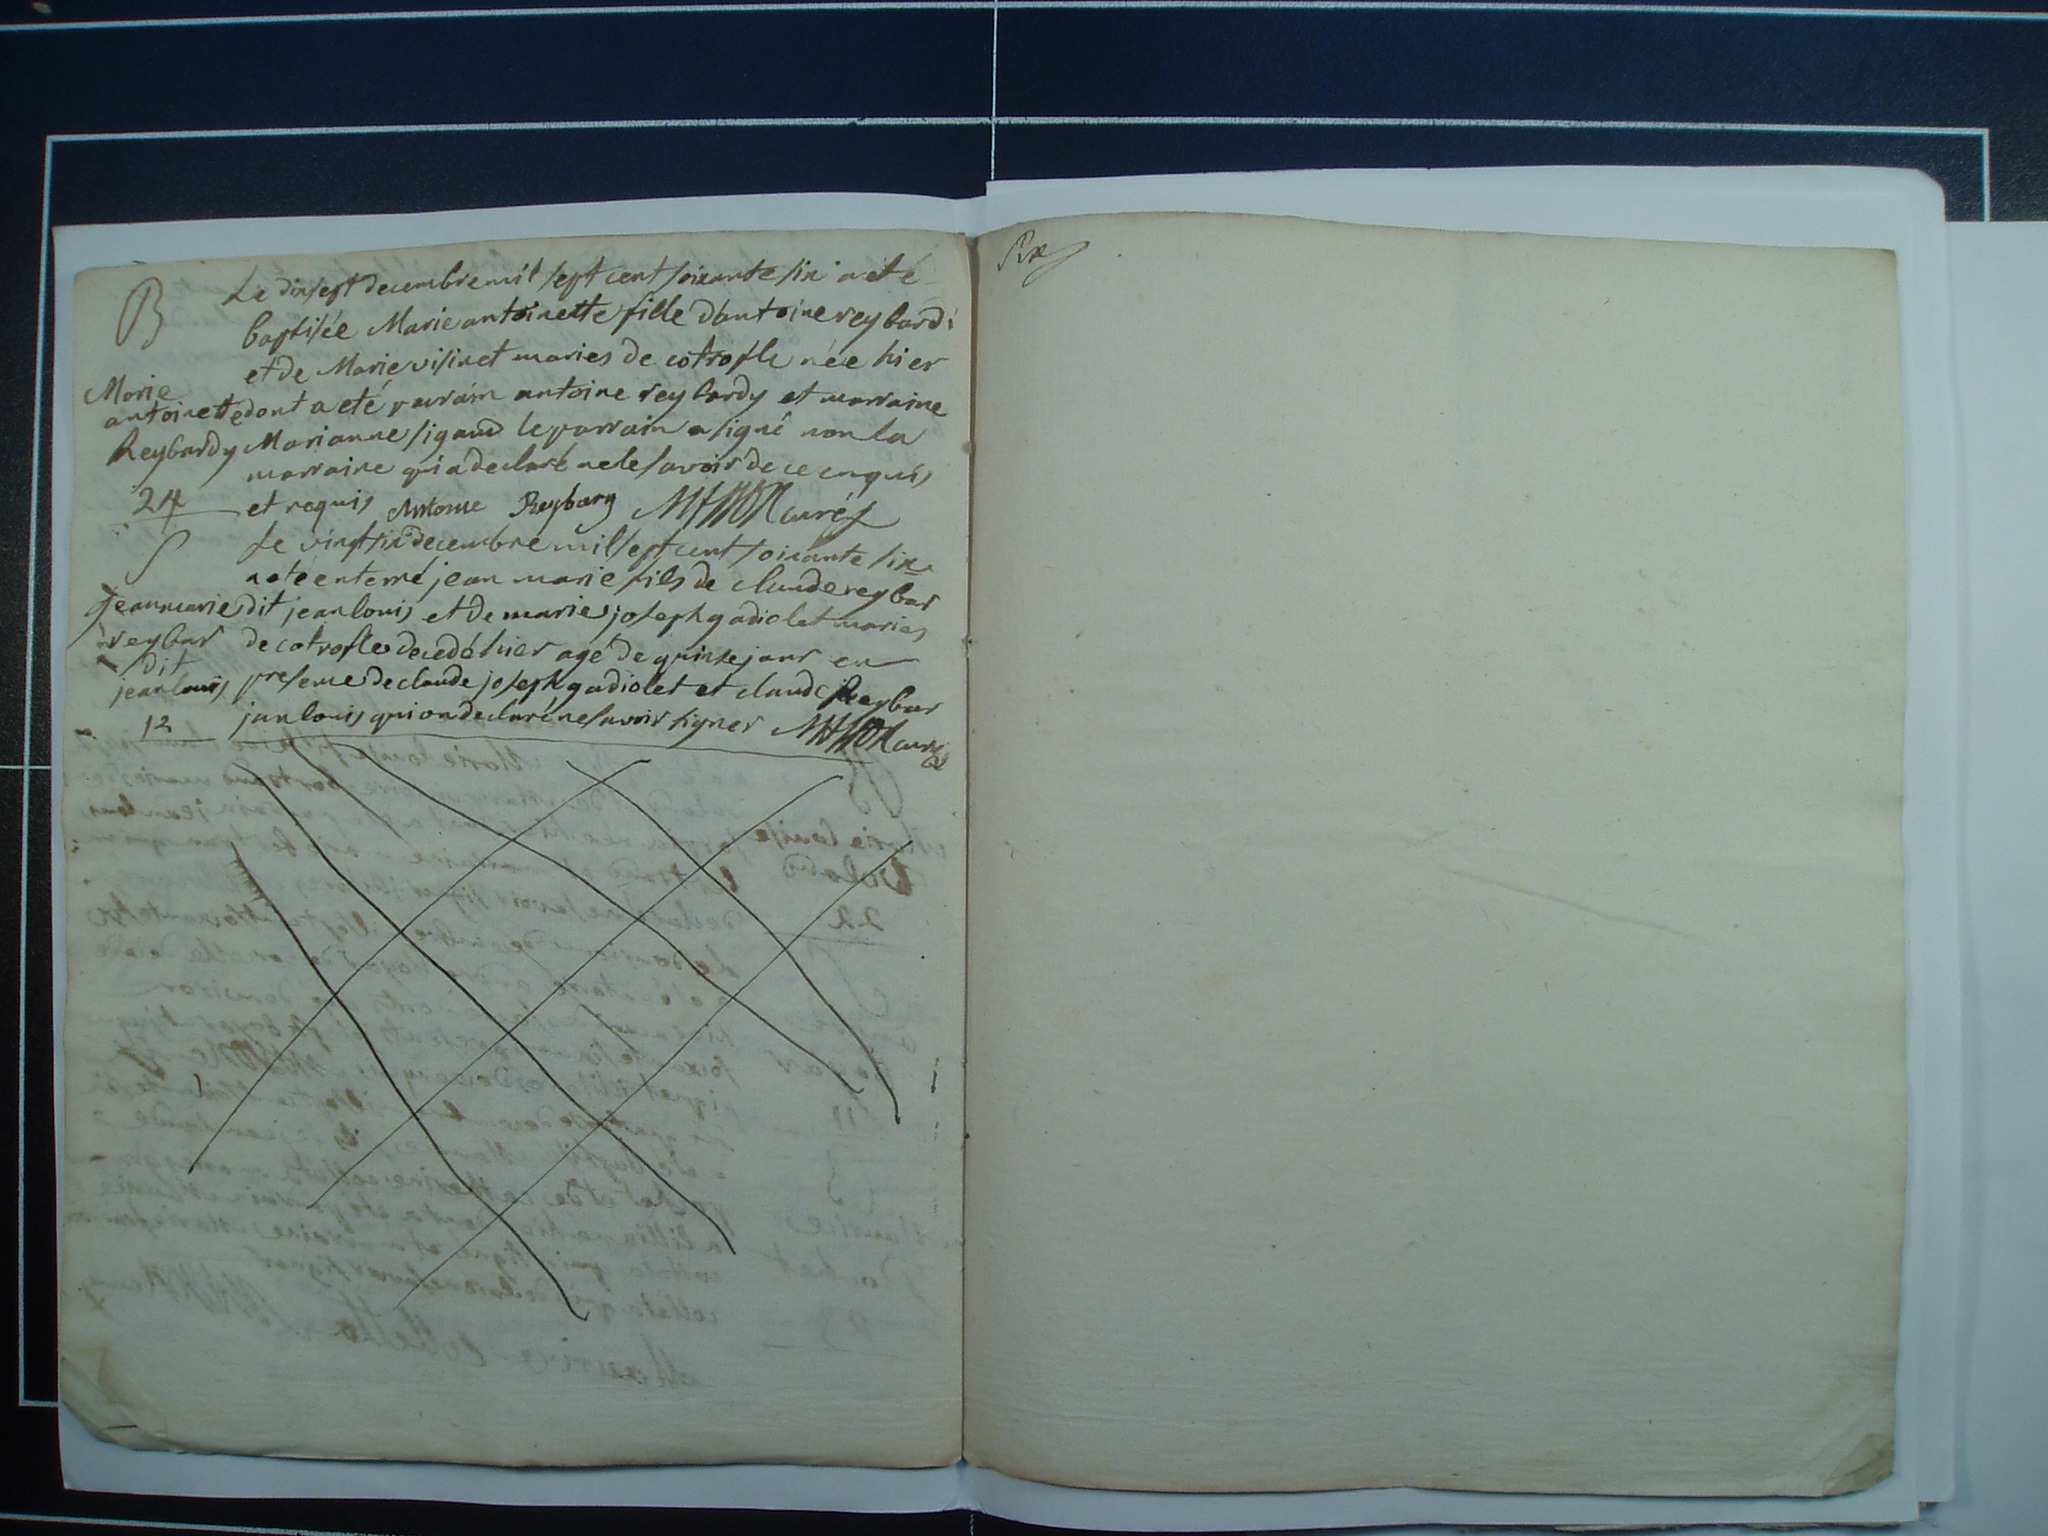 B
Le dixsept decembre mil sept cent soixante six a eté
baptisée Marie antoinette fille d'antoine reybardi
et de Marie visinet maries de cotrofle née hier
Marie
antoinette dont a eté parrain antoine reybardy et marraine
Reybardy Marianne sigaud le parrain a signé non la
marraine qui a declaré ne le savoir de ce enquis
24 et requis Antoine Reybary curé
S Le vingt six decembre mil sept cent soixante six
a eté enterré jean marie fils de claude reybar
Jeanmarie dit jean louis et de marie joseph gadiolet maries
reybar de cotrofle decedé hier agé de quinse jour en
dit
jean louis presence de claude joseph gadiolet et claude Reybar
12 jan louis qui on declaré ne savoir signer curé